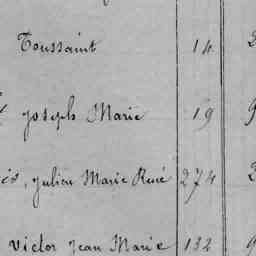 Toussaint 14
Joseph Marie 19
Julien Marie René 274
Victor Jean Marie 132